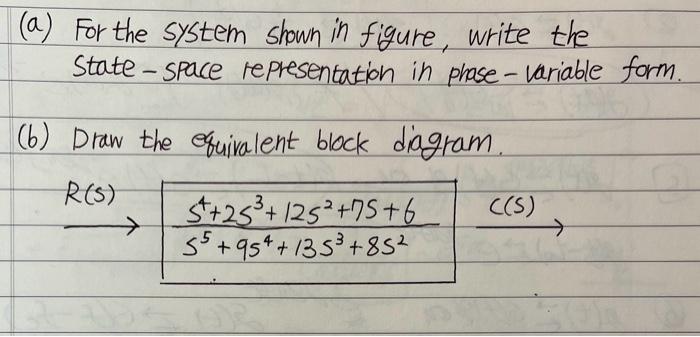 (a) For the system shown in figure, write the
state-space representation in phase-variable form.
(b) Draw the equivalent block diagram.
R(s)
s⁴+2s³+12s²+7s+6
s⁵+9s⁴+13s³+8s²
C(s)